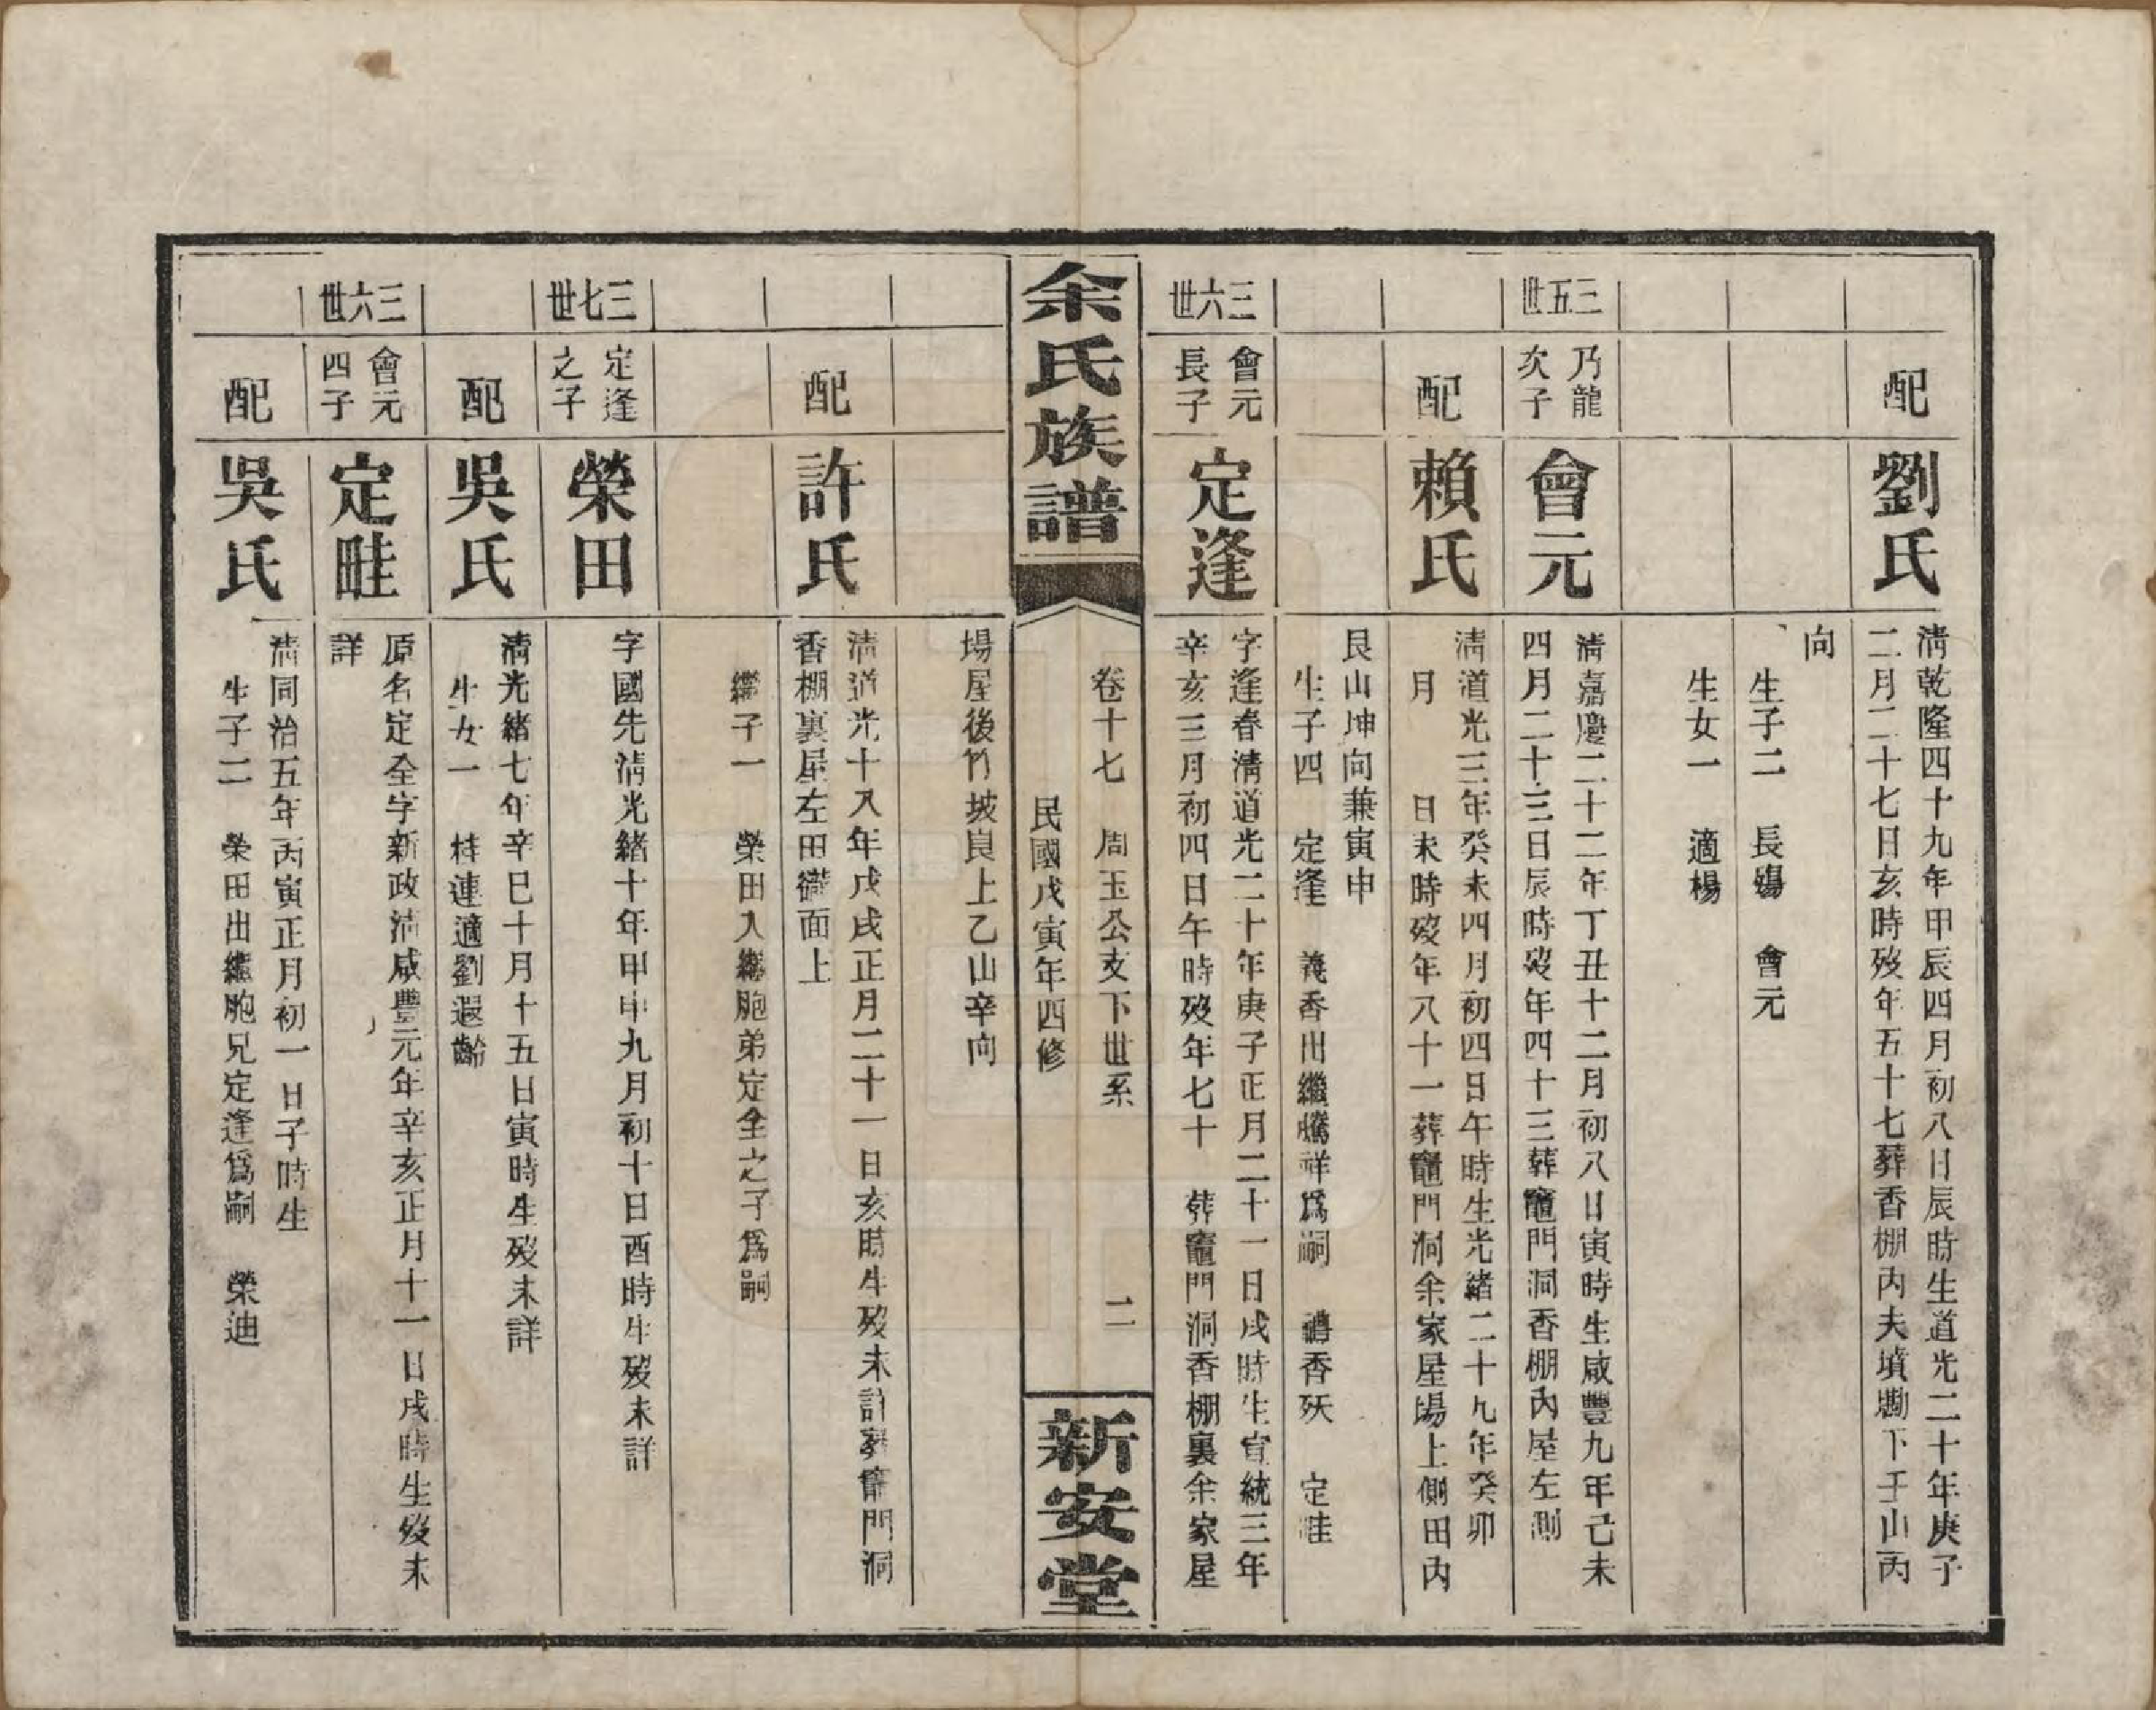 配
劉氏
清乾隆四十九年甲辰四月初八日辰時生道光二十年庚子
二月二十七日亥時歿年五十七葬香棚內夫墳勘下壬山丙
向
生子二 長殤 會元
生女一 適楊
三五世
乃龍
次子
會元
清嘉慶二十二年丁丑十二月初八日寅時生咸豐九年己未
四月二十三日辰時歿年四十三葬竈門洞香棚內屋左側
配
賴氏
清道光三年癸未四月初四日午時生光緒二十九年癸卯
月 日未時歿年八十一葬竈門洞余家屋場上側田內
艮山坤向兼寅申
生子四 定逢 義香出繼騰祥爲嗣 禮香殀 定畦
三六世
會元
長子
定逢
字逢春清道光二十年庚子正月二十一日戌時生宣統三年
辛亥三月初四日午時歿年七十 葬竈門洞香棚裏余家屋
余氏族譜
卷十七 周玉公支下世系 二
民國戊寅年四修
新安堂
場屋後竹坡艮上乙山辛向
配
許氏
清道光十八年戊戌正月二十一日亥時生歿未詳葬竈門洞
香棚裏屋左田礎面上
繼子一 榮田入繼胞弟定全之子爲嗣
三七世
定逢
之子
榮田
字國先清光緒十年甲申九月初十日酉時生歿未詳
配
吳氏
清光緒七年辛巳十月十五日寅時生歿未詳
生女一 桂連適劉遐齡
三六世
會元
四子
定畦
原名定全字新政清咸豐元年辛亥正月十一日戌時生歿未
詳
配
吳氏
清同治五年丙寅正月初一日子時生
生子二 榮田出繼胞兄定逢爲嗣 榮迪